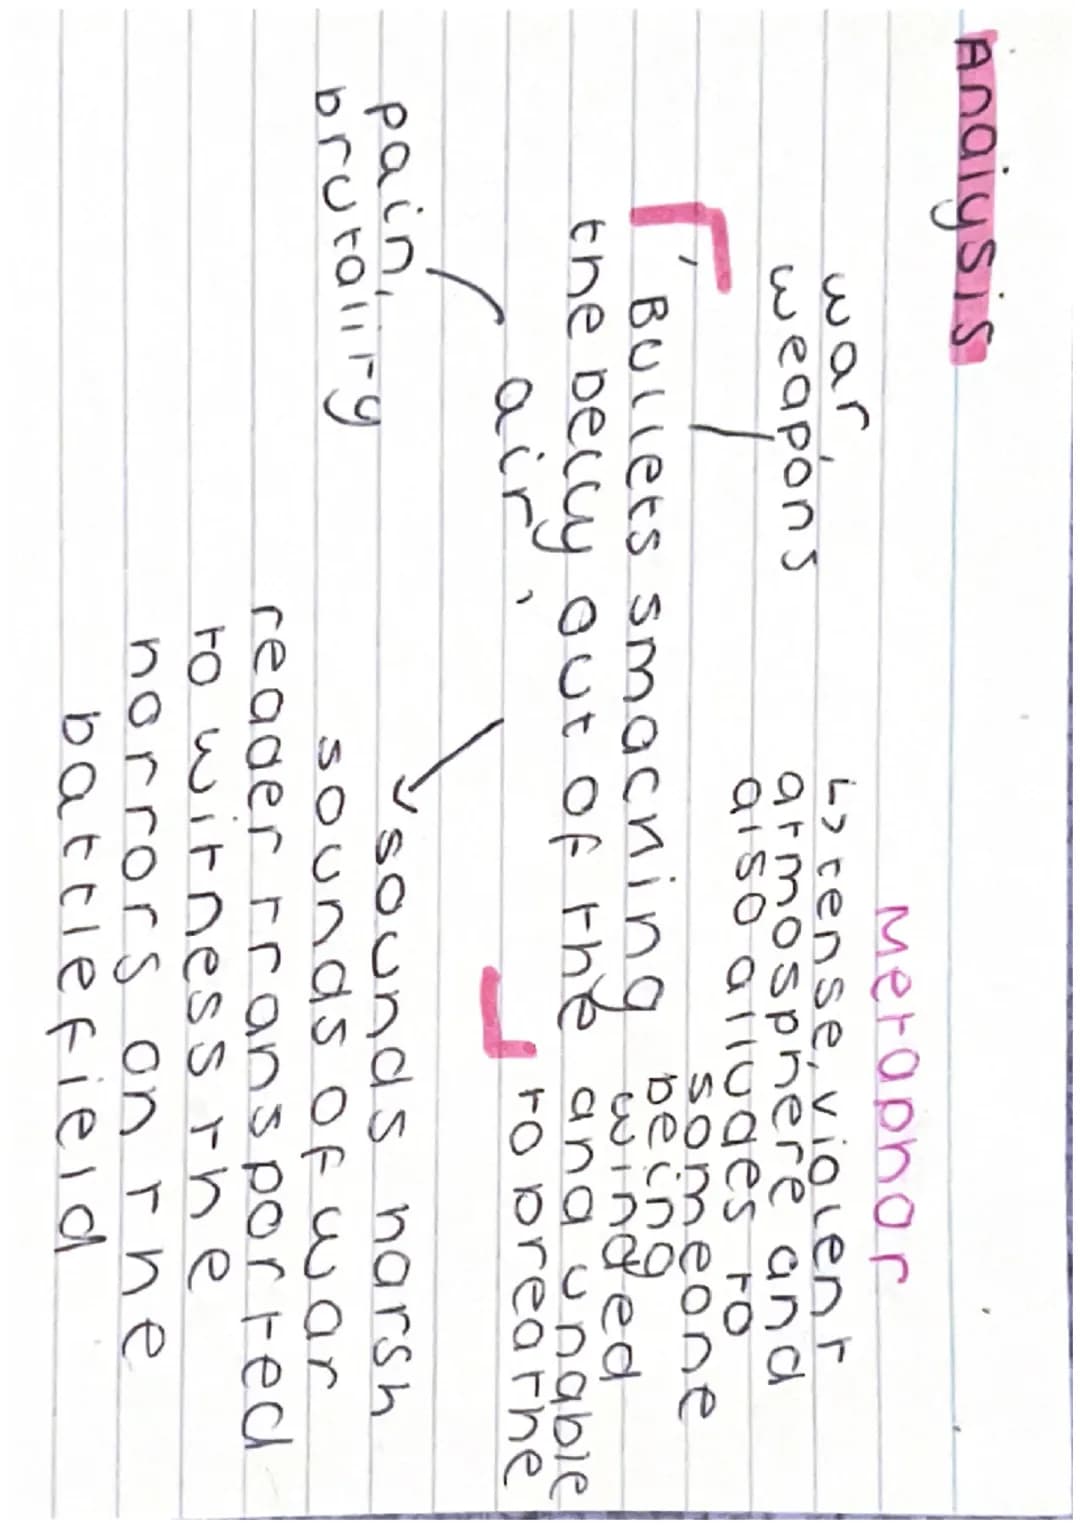 Analysis
Metaphor
war
weapons
↳ tense, violent
atmosphere and
also alludes to
someone
being
winded
and unable
to breathe
' Bullets smacking
the belly out of the
air '
pain,
brutality
sounds harsh
sounds of war
reader transported
to witness the
horrors on the
battlefield